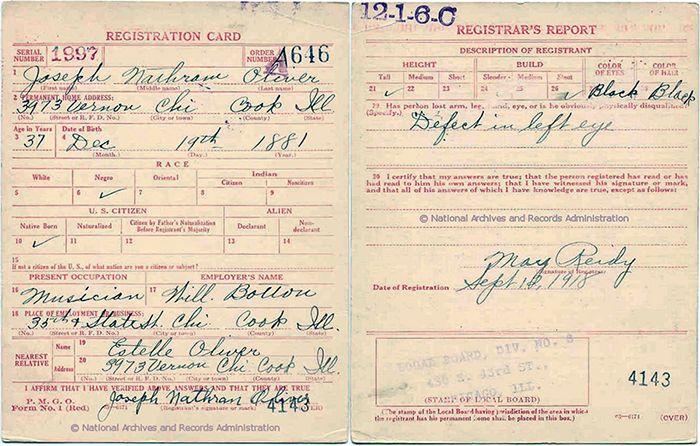 REGISTRATION CARD
SERIAL NUMBER 1997 ORDER NUMBER A4646
1 Joseph Nathram Oliver
(First name) (Middle name) (Last name)
2 PERMANENT HOME ADDRESS:
3973 Vernon Chi Cook Ill
(No.) (Street or R. F. D. No.) (City or town) (County) (State)
Age in Years Date of Birth
3 37 4 Dec 19th 1881
(Month.) (Day.) (Year.)
RACE
White Negro Oriental Indian
Citizen Noncitizen
5 6 ✓ 7 8 9
U. S. CITIZEN ALIEN
Native Born Naturalized Citizen by Father's Naturalization Before Registrant's Majority Declarant Non-declarant
10 ✓ 11 12 13 14
15
If not a citizen of the U. S., of what nation are you a citizen or subject?
PRESENT OCCUPATION EMPLOYER'S NAME
16 Musician 17 Will. Botton
18 PLACE OF EMPLOYMENT OR BUSINESS:
35th & State St Chi. Cook Ill.
(No.) (Street or R. F. D. No.) (City or town) (County) (State)
NEAREST RELATIVE Name 19 Estelle Oliver
Address 20 3973 Vernon Chi Cook Ill.
(No.) (Street or R. F. D. No.) (City or town) (County) (State)
I AFFIRM THAT I HAVE VERIFIED ABOVE ANSWERS AND THAT THEY ARE TRUE
P. M. G. O.
Form No. 1 (Red) Joseph Nathran Oliver
(Registrant's signature or mark) 4143 (OVER)
© National Archives and Records Administration
12-1-6-C
REGISTRAR'S REPORT
DESCRIPTION OF REGISTRANT
HEIGHT BUILD COLOR OF EYES COLOR OF HAIR
Tall Medium Short Slender Medium Stout
21 ✓ 22 23 24 25 26 ✓ 27 Black 28 Black
29 Has person lost arm, leg, hand, eye, or is he obviously physically disqualified?
(Specify.) Defect in left eye
30 I certify that my answers are true; that the person registered has read or has had read to him his own answers; that I have witnessed his signature or mark, and that all of his answers of which I have knowledge are true, except as follows:
© National Archives and Records Administration
Mary Reidy
(Signature of Registrar)
Date of Registration Sept 12, 1918
LOCAL BOARD, DIV. NO. 3
436 E. 43rd ST.,
CHICAGO, ILL.
(STAMP OF LOCAL BOARD) 4143
(The stamp of the Local Board having jurisdiction of the area in which the registrant has his permanent home shall be placed in this box.)
03—6171 (OVER)